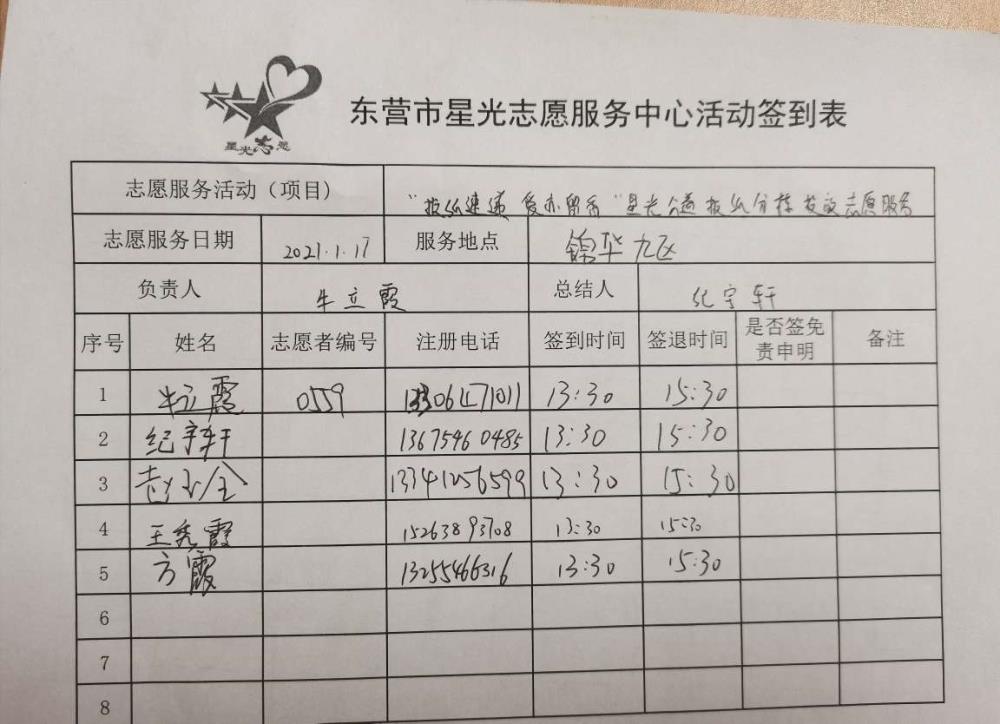 星光志愿
东营市星光志愿服务中心活动签到表
志愿服务活动（项目） "报纸速递 爱心留香"星光公益报纸分拣发放志愿服务
志愿服务日期 2021.1.17 服务地点 锦华九区
负责人 牛立霞 总结人 纪宇轩
序号 姓名 志愿者编号 注册电话 签到时间 签退时间 是否签免 备注
责申明
1 牛立霞 0559 13:30 15:30
2 纪宇轩 13675460485 13:30 15:30
3 13341256599 13:30 15:30
4 王秀霞 15263893708 13:30 15:30
5 方霞 13255466316 13:30 15:30
6
7
8